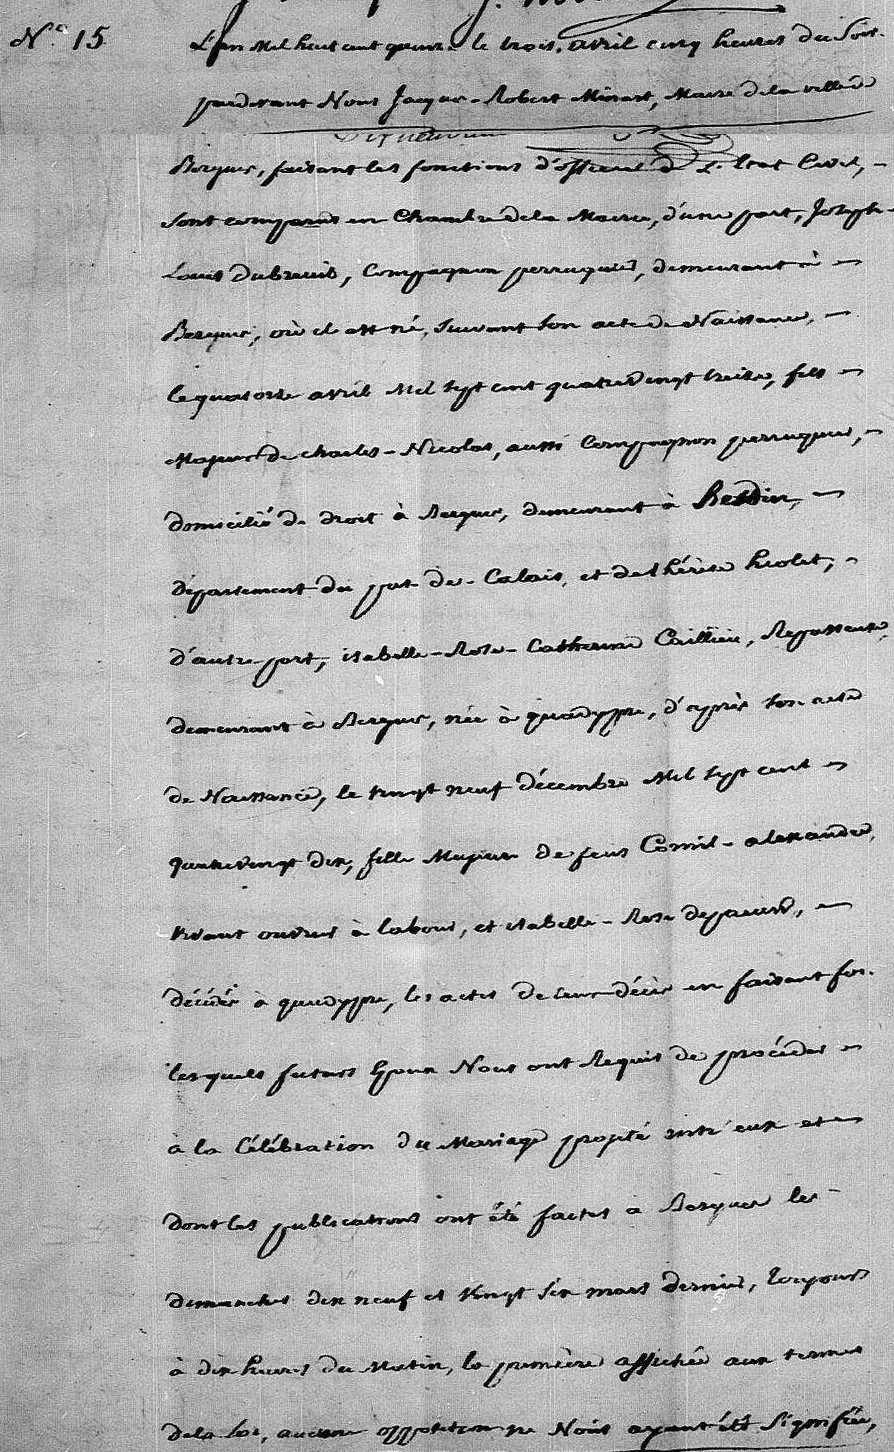 N.° 15
L'an Mil huit cent quinze le trois, avril cinq heures du Soir.
pardevant Nous Jacques-Robert Minart, Maire de la ville de
Bergues, faisant les fonctions d'officier de L'état Civil,
Sont comparus en Chambre de la Mairie, d'une part, Joseph-
Louis Dubreuil, Compagnon perruquier, demeurant à
Bergues, où il est né, Suivant Son acte de Naissance,
le quatorze avril Mil Sept cent quatre vingt treize, fils
Majeur de charles-Nicolas, aussi Compagnon perruquier,
domicilié de droit à Bergues, demeurant à Hesdin,
département du pas-de-Calais, et de thérèse
d'autre part, isabelle-Rose-Catherine Cailliéu, Repasseuse,
demeurant à Bergues, née à quaëdypre, d'après Son acte
de Naissance, le vingt neuf décembre Mil Sept cent
quatrevingt dix, fille Majeure de feus Cornil-alexandre,
vivant ouvrier à labour, et isabelle-Rose
décédés à quaedypre, les actes de leur décès en faisant foi.
lesquels futurs Epoux Nous ont Requis de procéder
à la Célébration du Mariage projeté entr'eux et
dont les publications ont été faites à Bergues les
dimanches dix neuf et vingt Six mars dernier, toujours
à dix heures du Matin, la première affichée aux termes
de la loi, aucune opposition ne Nous ayant été Signifiée,